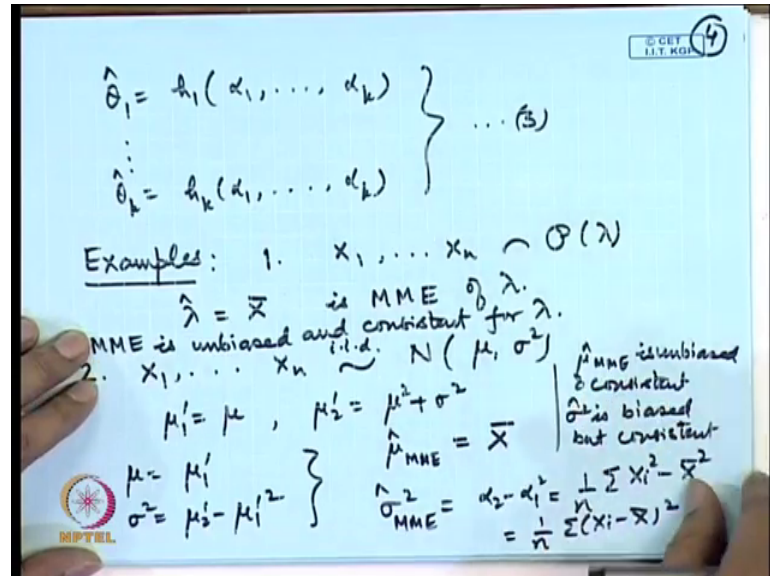 © CET
I.I.T. KGP
4
θ̂₁ = h₁(α₁, ..., αₖ)
⋮
θ̂ₖ = hₖ(α₁, ..., αₖ) } ... (3)
Examples: 1. X₁, ... Xₙ ~ P(λ)
λ̂ = X̄ is MME of λ.
MME is unbiased and consistent for λ.
2. X₁, ... Xₙ i.i.d. ~ N(μ, σ²)
μ₁' = μ, μ₂' = μ² + σ²
μ = μ₁'
σ² = μ₂' - μ₁'² }
μ̂_MME = X̄
σ̂²_MME = α₂ - α₁² = 1/n Σ Xᵢ² - X̄²
= 1/n Σ(Xᵢ - X̄)²
μ̂_MME is unbiased
& consistent
σ̂² is biased
but consistent
NPTEL